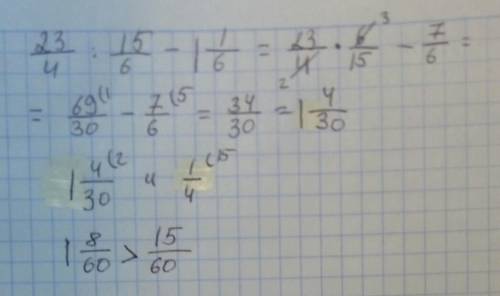 23/4 : 15/6 - 1 1/6 = 23/4 · 6/15 - 7/6 =
= 69/30 (1 - 7/6 (5 = 34/30 = 1 4/30
1 4/30 (2 и 1/4 (15
1 8/60 > 15/60